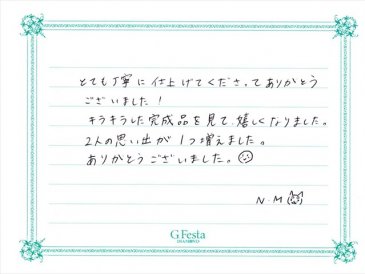 とても丁寧に仕上げてくださってありがとう
ございました！
キラキラした完成品を見て、嬉しくなりました。
2人の思い出が1つ増えました。
ありがとうございました。
N・M
G.Festa
DIAMOND